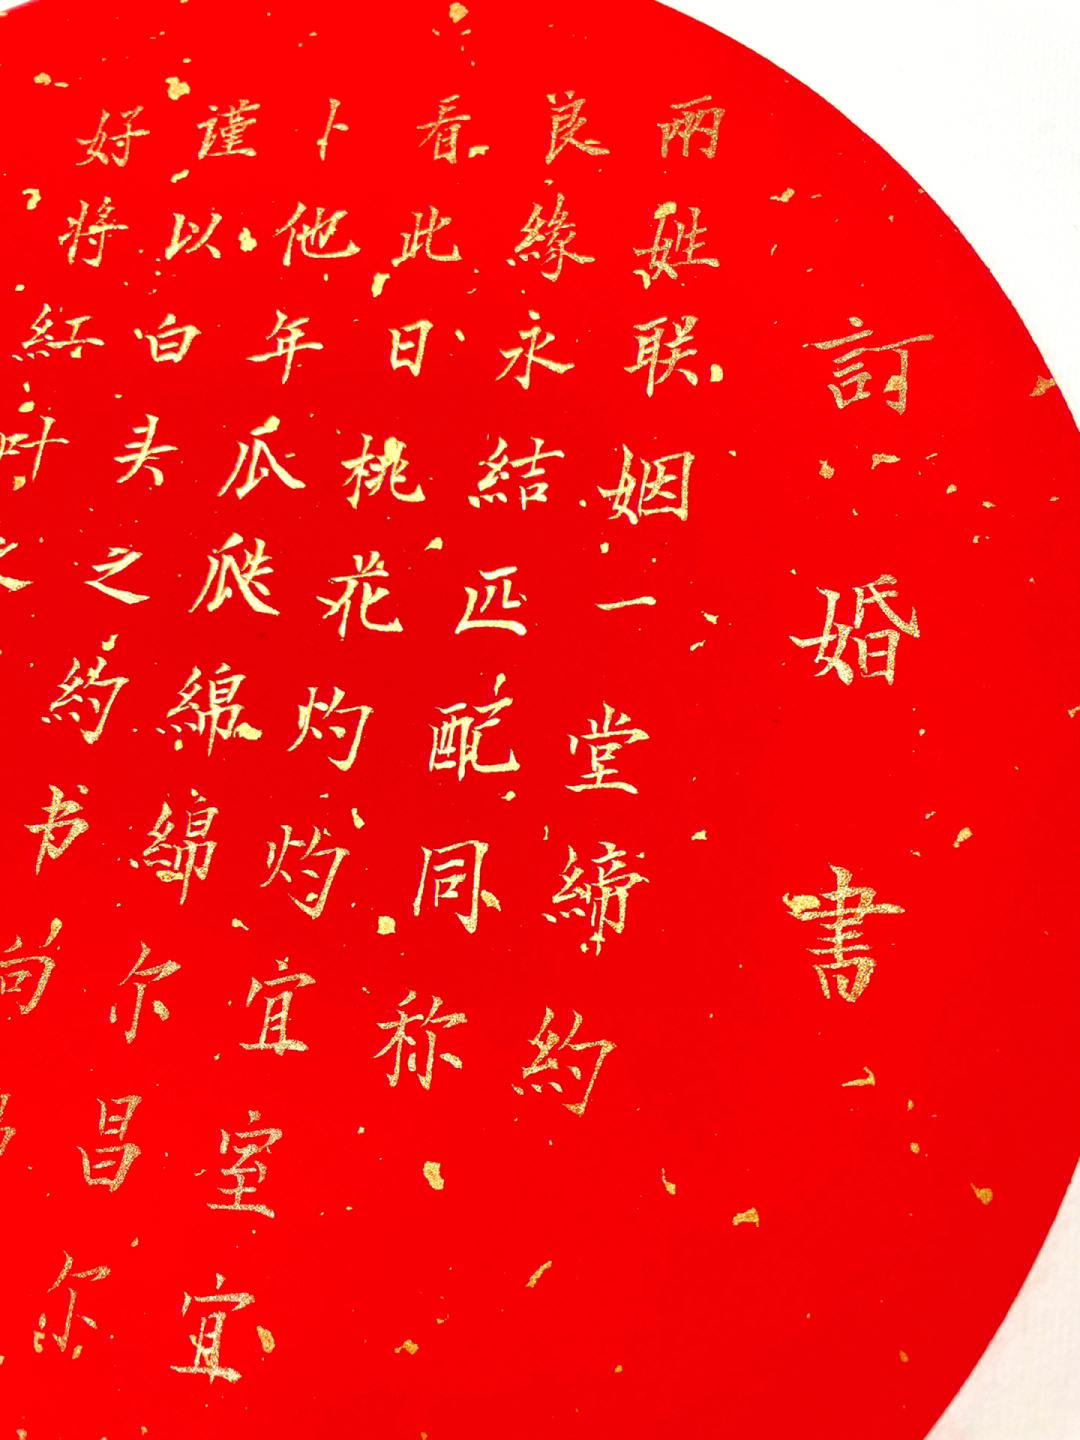 訂婚書
兩姓联姻一堂締約
良緣永結匹配同称
看此日桃花灼灼宜室宜
卜他年瓜瓞綿綿尔昌尔
謹以白头之約书向
好将紅叶之